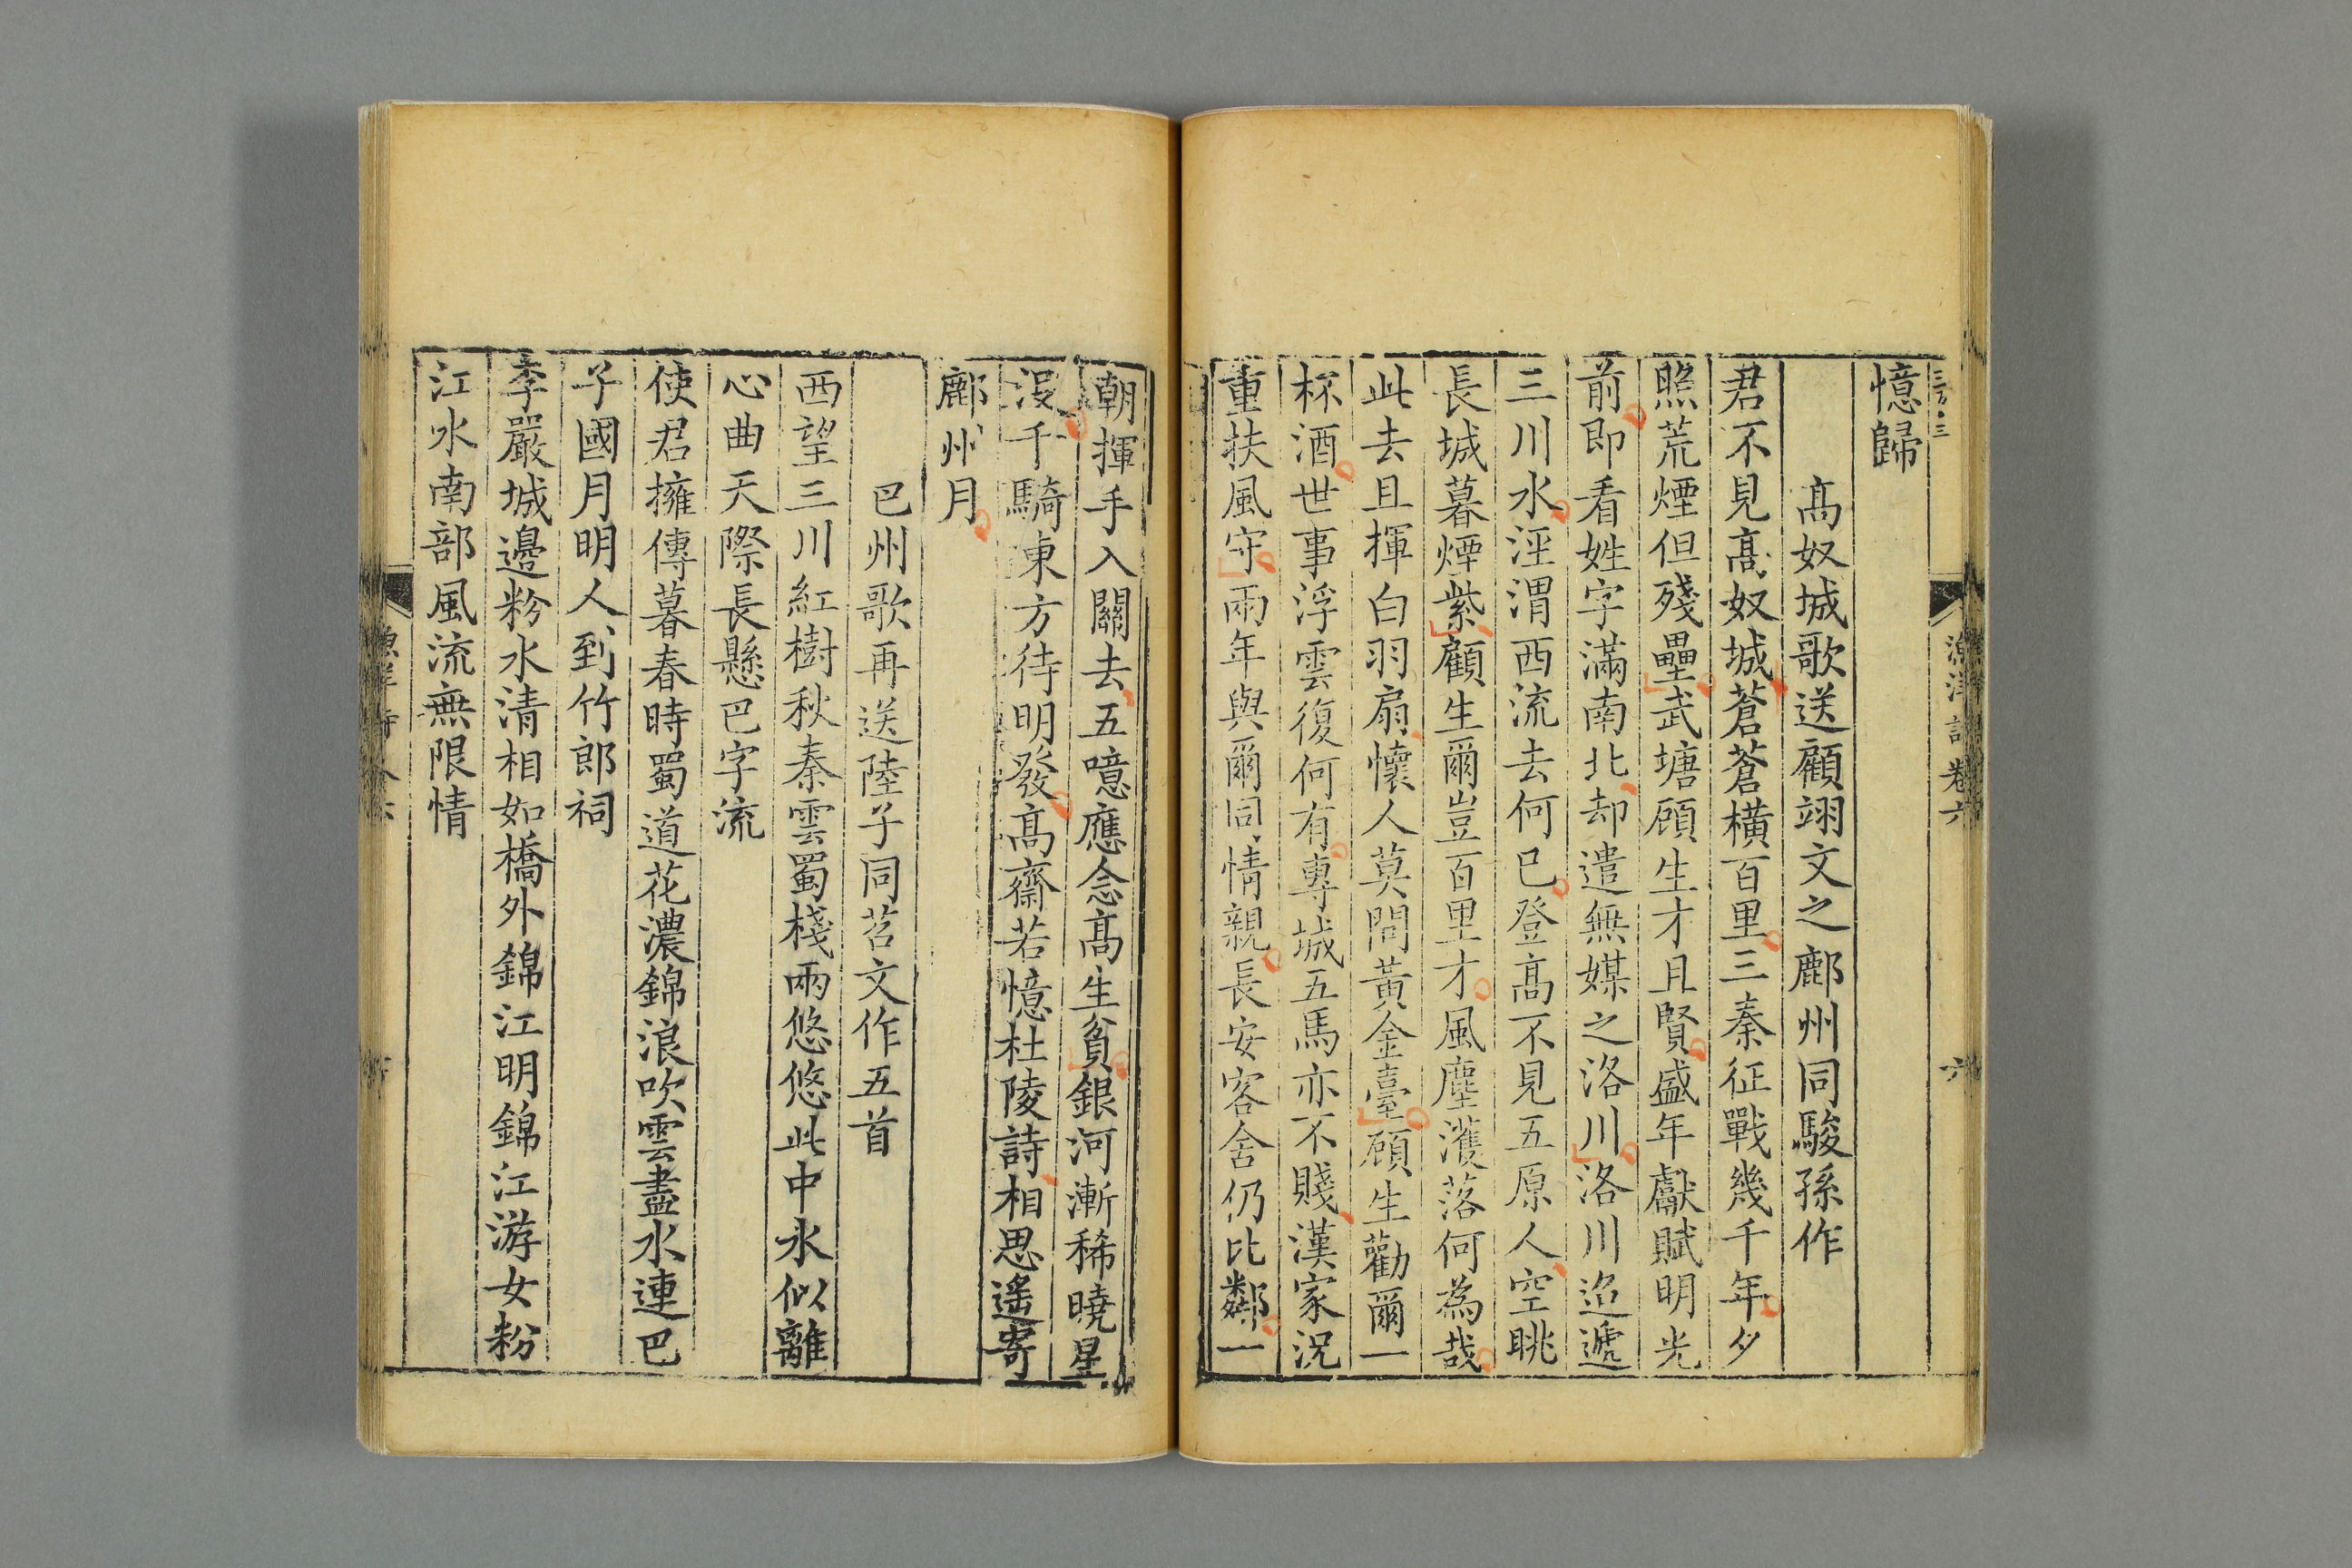 漁洋詩 卷六 六
憶歸
高奴城歌送顧翊文之鄜州同駿孫作
君不見高奴城蒼蒼橫百里三秦征戰幾千年夕
照荒煙但殘壘武塘顧生才且賢盛年獻賦明光
前即看姓字滿南北却遣無媒之洛川洛川迢遞
三川水涇渭西流去何已登高不見五原人空眺
長城暮煙紫顧生爾豈百里才風塵濩落何為哉
此去且揮白羽扇懷人莫問黃金臺顧生勸爾一
杯酒世事浮雲復何有專城五馬亦不賤漢家況
重扶風守兩年與爾同情親長安客舍仍比鄰一
朝揮手入關去五噫應念高生貧銀河漸稀曉星
沒千騎東方待明發高齋若憶杜陵詩相思遙寄
鄜州月
巴州歌再送陸子同苕文作五首
西望三川紅樹秋秦雲蜀棧兩悠悠此中水似離
心曲天際長懸巴字流
使君擁傳暮春時蜀道花濃錦浪吹雲盡水連巴
子國月明人到竹郎祠
李嚴城邊粉水清相如橋外錦江明錦江游女粉
江水南部風流無限情